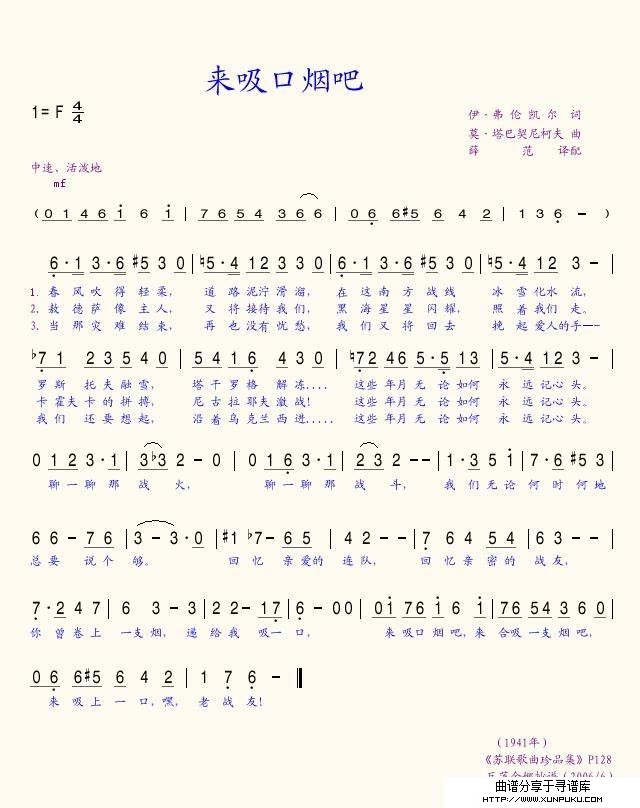 来吸口烟吧
1= F 4/4
伊·弗伦凯尔 词
莫·塔巴契尼柯夫 曲
薛 范 译配
中速、活泼地
mf
( 0 1 4 6 i 6 i | 7 6 5 4 3 6 6 | 0 6 6 #5 6 4 2 | 1 3 6 - )
6·1 3·6 #5 3 0 | ♮5·4 1 2 3 0 | 6·1 3·6 #5 3 0 | ♮5·4 1 2 3 - |
1. 春 风 吹 得 轻 柔, 道 路 泥泞 滑 溜, 在 这 南 方 战 线 冰 雪 化 水 流,
2. 敖 德 萨 像 主 人, 又 将 接待 我 们, 黑 海 星 星 闪 耀, 照 着 我 们 走。
3. 当 那 灾 难 结 束, 再 也 没有 忧 愁, 我 们 又 将 回 去 挽 起 爱人 的 手—-
♭7 1 2 3 5 4 0 | 5 4 1 6 4 3 0 | ♮7 2 4 6 5·5 1 3 | 5·4 1 2 3 0 |
罗 斯 托 夫 融 雪, 塔 干 罗 格 解 冻.... 这些 年月 无 论 如何 永 远 记心 头。
卡 霍 夫 卡 的 拼 搏, 尼 古 拉 耶 夫 激 战! 这些 年月 无 论 如何 永 远 记心 头。
我 们 还 要 想 起, 沿 着 乌 克 兰 西 进..... 这些 年月 无 论 如何 永 远 记心 头。
0 1 2 3·1 | 3 ♭3 2 - 0 | 0 1 6 3·1 | 2 3 2 - | 1·3 5 i | 7·6 #5 3 |
聊 一 聊 那 战 火, 聊 一 聊 那 战 斗, 我 们 无 论 何 时 何 地
6 6 - 7 6 | 3 - 3·0 | #1 ♭7- 6 5 | 4 2 - - | 7 6 4 5 4 | 6 3 - - |
总 要 说 个 够。 回 忆 亲 爱的 连 队, 回 忆 亲 密 的 战 友,
7·2 4 7 | 6 3 - 3 | 2 2 - 1 7 | 6 - 0 0 | 0 i 7 6 i 6 i | 7 6 5 4 3 6 0 |
你 曾 卷 上 一 支 烟, 递 给 我 吸 一 口, 来 吸 口 烟 吧, 来 合 吸 一 支 烟 吧,
0 6 6 #5 6 4 2 | 1 7 6 - ‖
来 吸 上 一 口, 嘿, 老 战 友!
(1941年)
《苏联歌曲珍品集》P128
曲谱分享于寻谱库
HTTP://WWW.XUNPUKU.COM